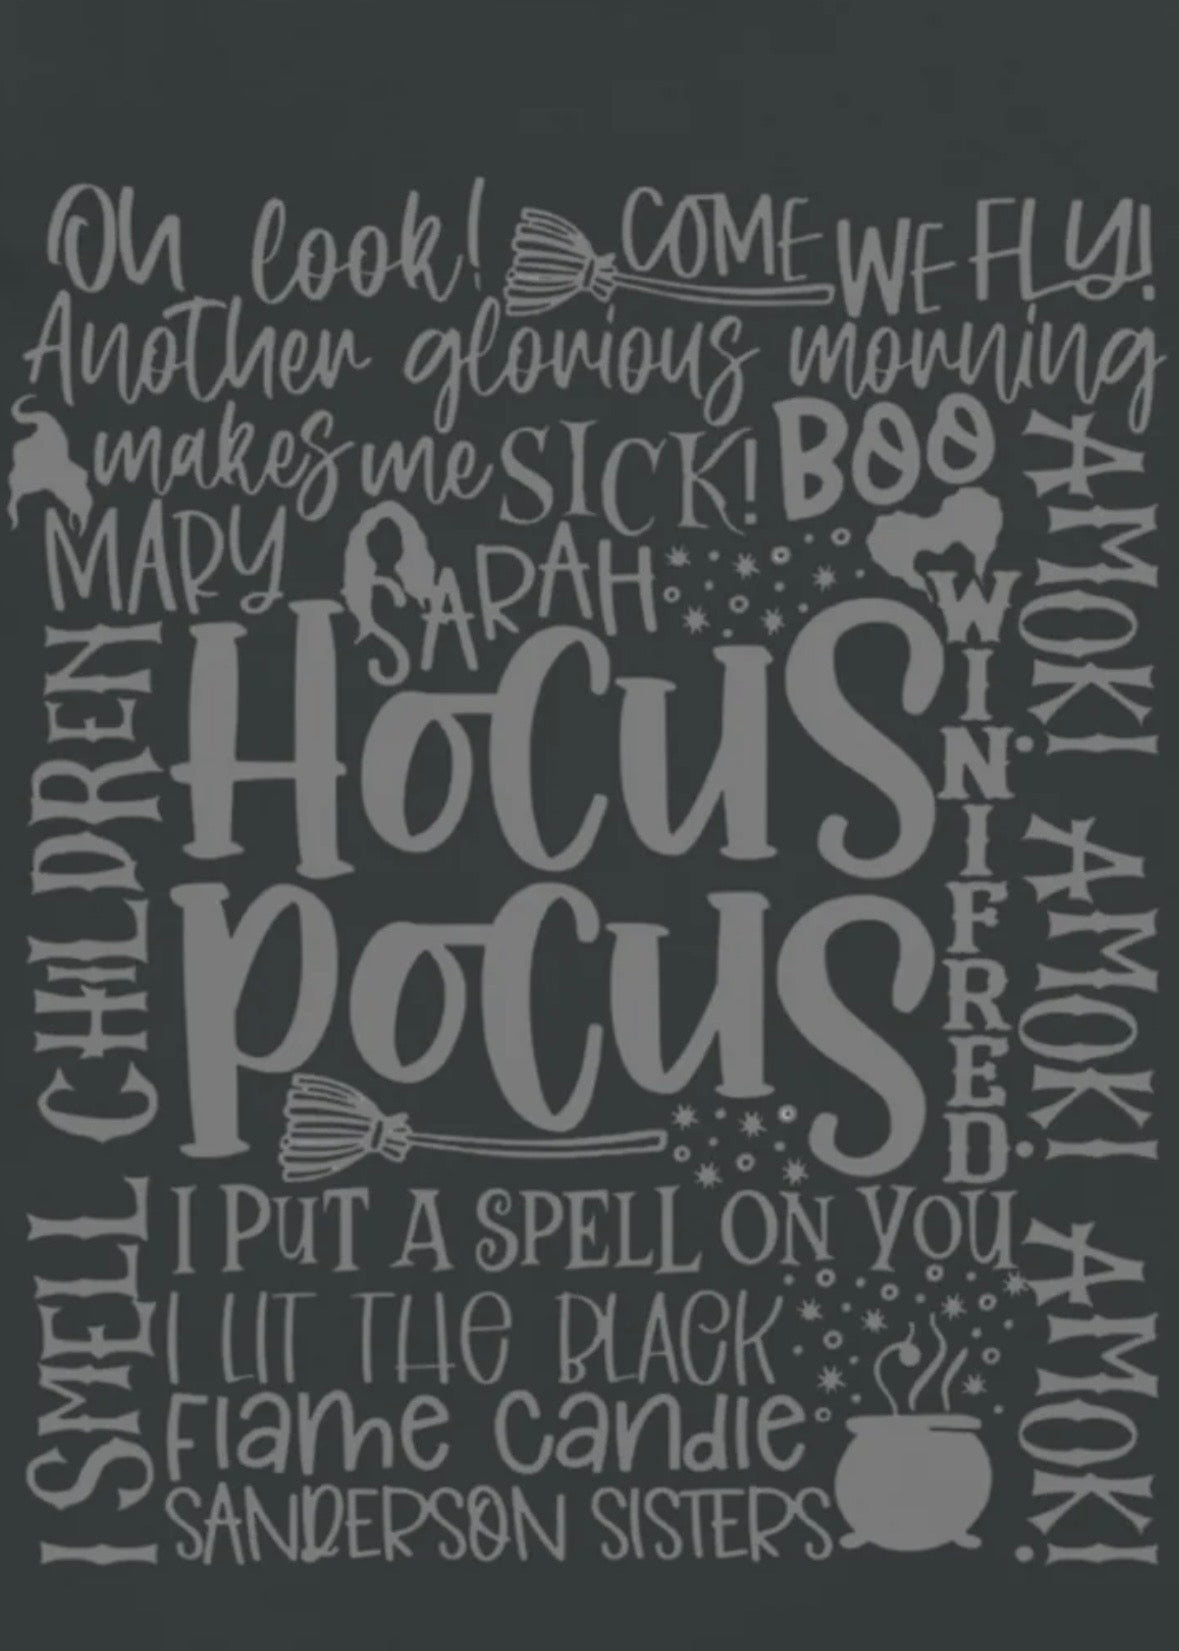 Oh look! COME WE FLY!
Another glorious morning
makes me SICK! BOO
MARY SARAH
HOCUS
POCUS
WINIFRED
I SMELL CHILDREN
AMOK! AMOK! AMOK!
I PUT A SPELL ON YOU
I LIT THE BLACK
Flame Candle
SANDERSON SISTERS